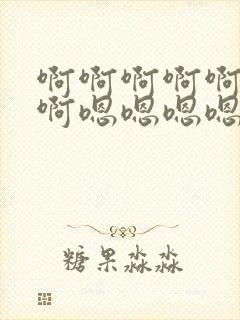 啊啊啊啊啊
啊嗯嗯嗯嗯
糖果淼淼